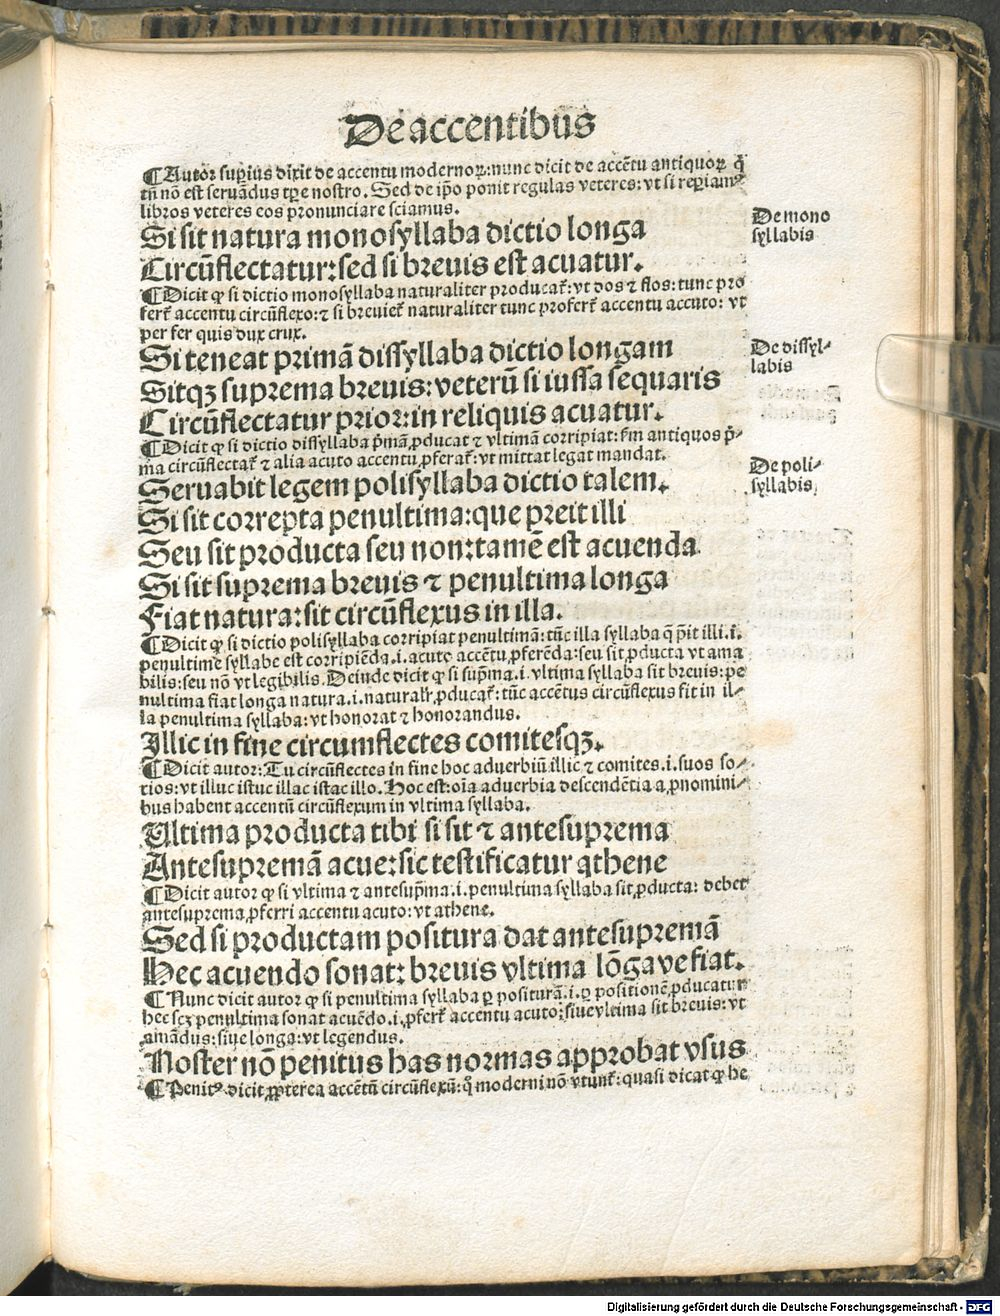 De accentibus
¶ Autor superius dixit de accentu modernoꝝ: nunc dicit de accētu antiquoꝝ q̄
tn̄ nō est seruādus tꝑe nostro. Sed de ip̄o ponit regulas veteres: vt si reꝑiamꝰ
libros veteres eos pronunciare sciamus.
De mono
syllabis
Si sit natura monosyllaba dictio longa
Circūflectatur: sed si breuis est acuatur.
¶ Dicit ꝙ si dictio monosyllaba naturaliter producat᷑: vt dos ⁊ flos: tunc pro
fert᷑ accentu circūflexo: ⁊ si breuiet᷑ naturaliter tunc profert᷑ accentu accuto: vt
per fer quis dux crux.
De dissyl⸗
labis
Si teneat primā dissyllaba dictio longam
Sitqꝫ suprema breuis: veterū si iussa sequaris
Circūflectatur prior: in reliquis acuatur.
¶ Dicit ꝙ si dictio dissyllaba p̄mā ꝓducat ⁊ vltimā corripiat: fm antiquos p̄⸗
ma circūflectat᷑ ⁊ alia acuto accentu ꝓferat᷑: vt mittat legat mandat.
De poli⸗
syllabis
Seruabit legem polisyllaba dictio talem.
Si sit correpta penultima: que preit illi
Seu sit producta seu non: tamē est acuenda
Si sit suprema breuis ⁊ penultima longa
Fiat natura: sit circūflexus in illa.
¶ Dicit ꝙ si dictio polisyllaba corripiat penultimā: tūc illa syllaba q̄ p̄it illi .i.
penultime syllabe est corripiēda .i. acuto accētu ꝓferēda: seu sit ꝓducta vt ama
bilis: seu nō vt legibilis. Deinde dicit ꝙ si sup̄ma .i. vltima syllaba sit breuis: pe
nultima fiat longa natura .i. naturalr̄ ꝓducat᷑: tūc accētus circūflexus fit in il⸗
la penultima syllaba: vt honorat ⁊ honorandus.
Illic in fine circumflectes comitesqꝫ.
¶ Dicit autor: Tu circūflectes in fine hoc aduerbiū illic ⁊ comites .i. suos so⸗
cios: vt illuc istuc illac istac illo. Hoc est: oīa aduerbia descendētia a ꝓnomini⸗
bus habent accentū circūflexum in vltima syllaba.
Ultima producta tibi si sit ⁊ antesuprema
Antesupremā acue: sic testificatur athene
¶ Dicit autor ꝙ si vltima ⁊ antesup̄ma .i. penultima syllaba sit ꝓducta: debet
antesuprema ꝓferri accentu acuto: vt athene.
Sed si productam positura dat antesupremā
Hec acuendo sonat: breuis vltima lōga ve fiat.
¶ Nunc dicit autor ꝙ si penultima syllaba ꝑ positurā .i. ꝑ positionē ꝓducatur
hec scꝫ penultima sonat acuēdo .i. ꝓfert᷑ accentu acuto: siue vltima sit breuis: vt
amādus: siue longa: vt legendus.
Noster nō penitus has normas approbat vsus
¶ Penitꝰ dicit ꝓpterea accētū circūflexū: q̄ moderni nō vtunt᷑: quasi dicat ꝙ he
Digitalisierung gefördert durch die Deutsche Forschungsgemeinschaft - DFG